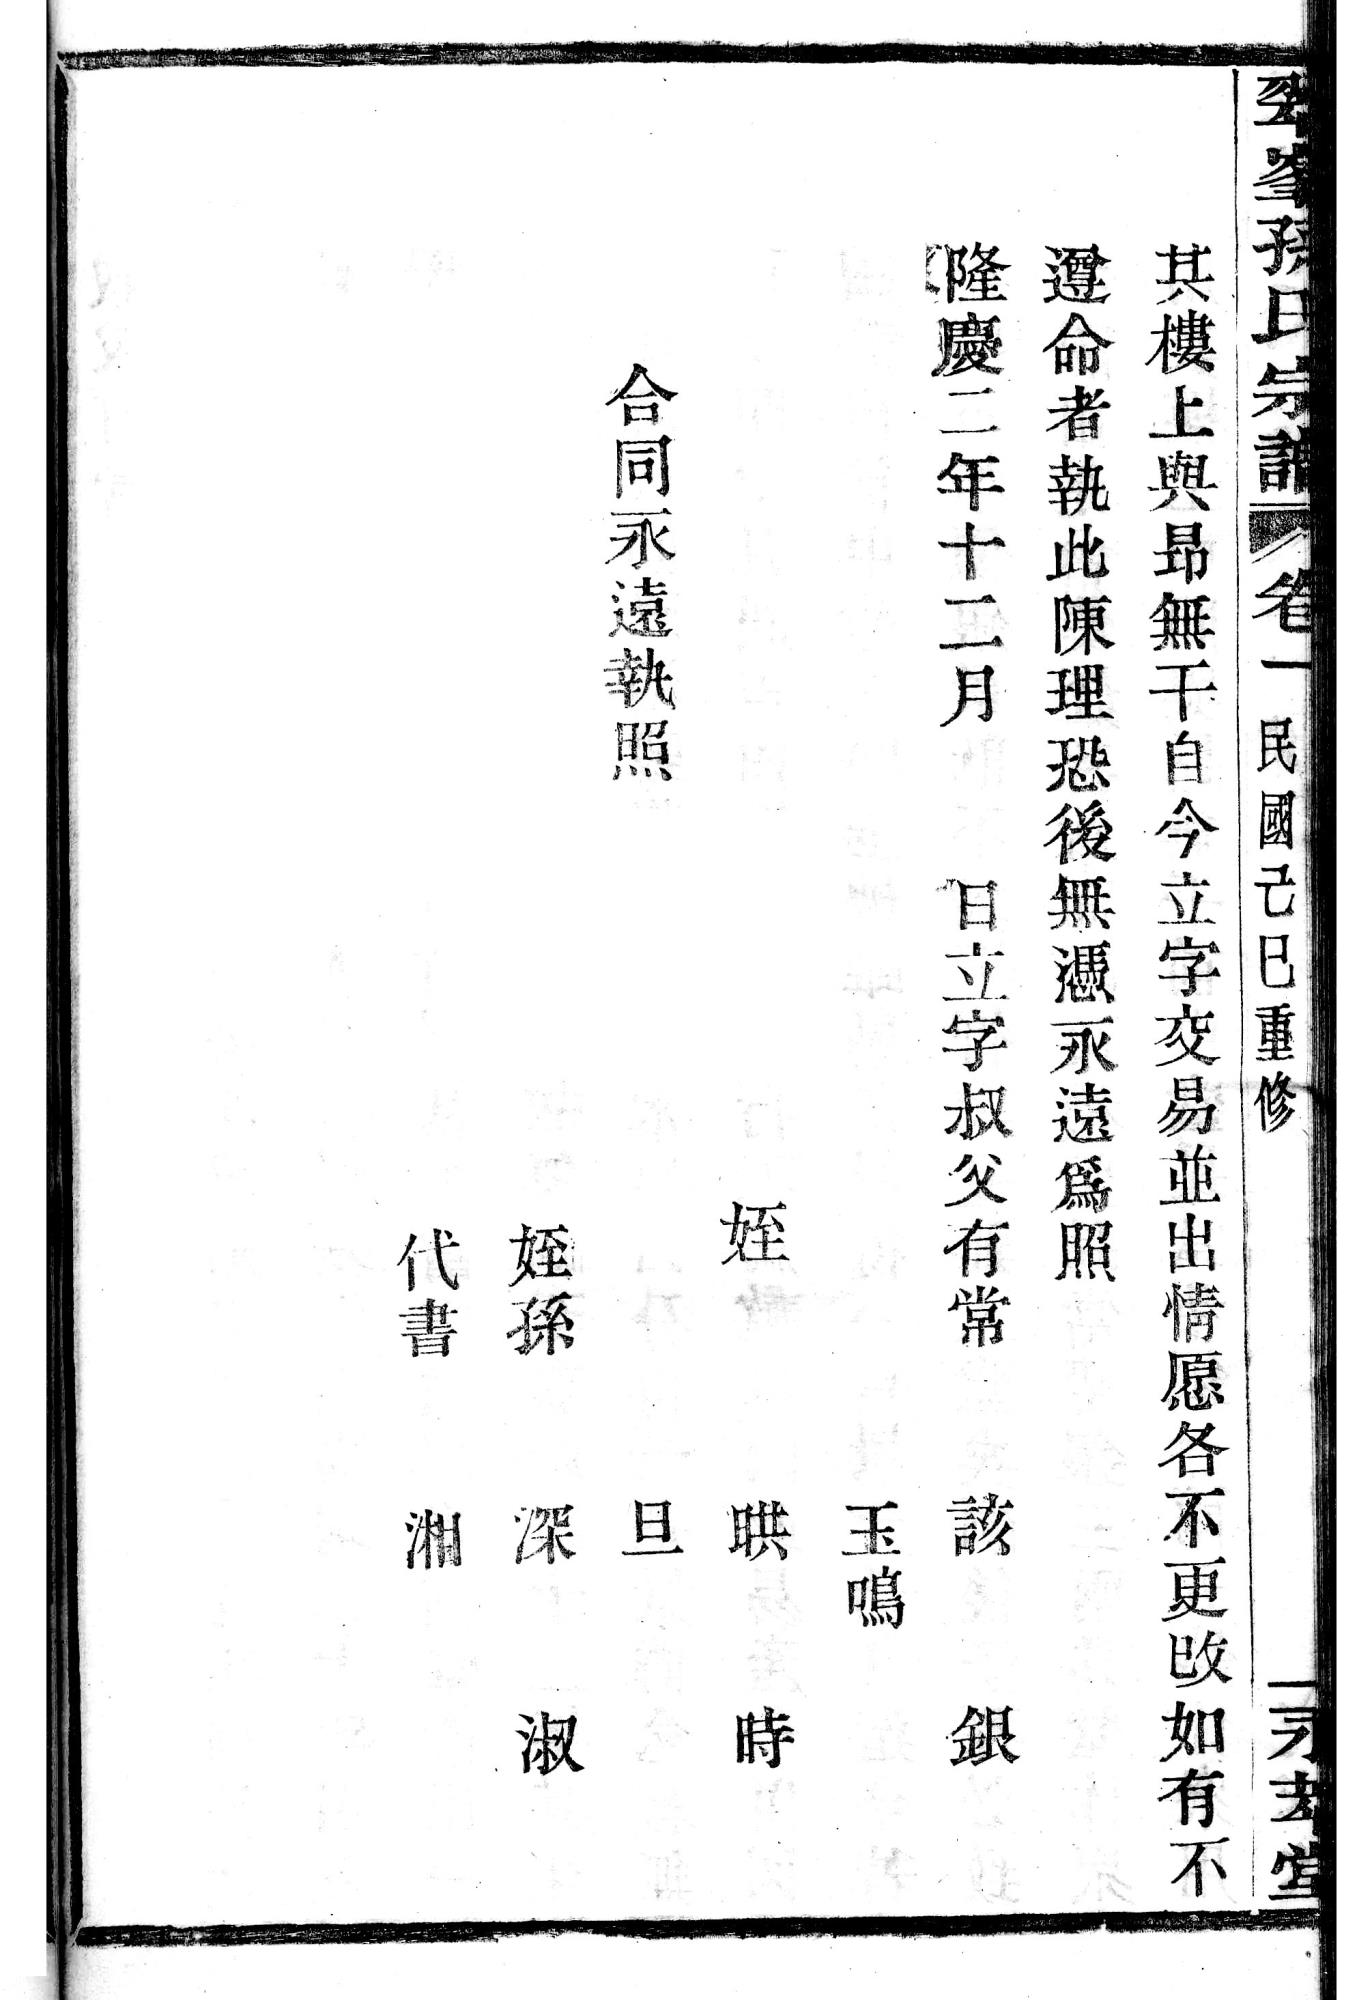 孫氏宗譜 卷一 民國己巳重修 永孝堂
其樓上與昂無干自今立字交易並出情愿各不更改如有不
遵命者執此陳理恐後無憑永遠爲照
隆慶二年十二月 日立字叔父有常 該 銀
玉鳴
姪 晎 時
合同永遠執照 旦
姪孫 深 淑
代書 湘